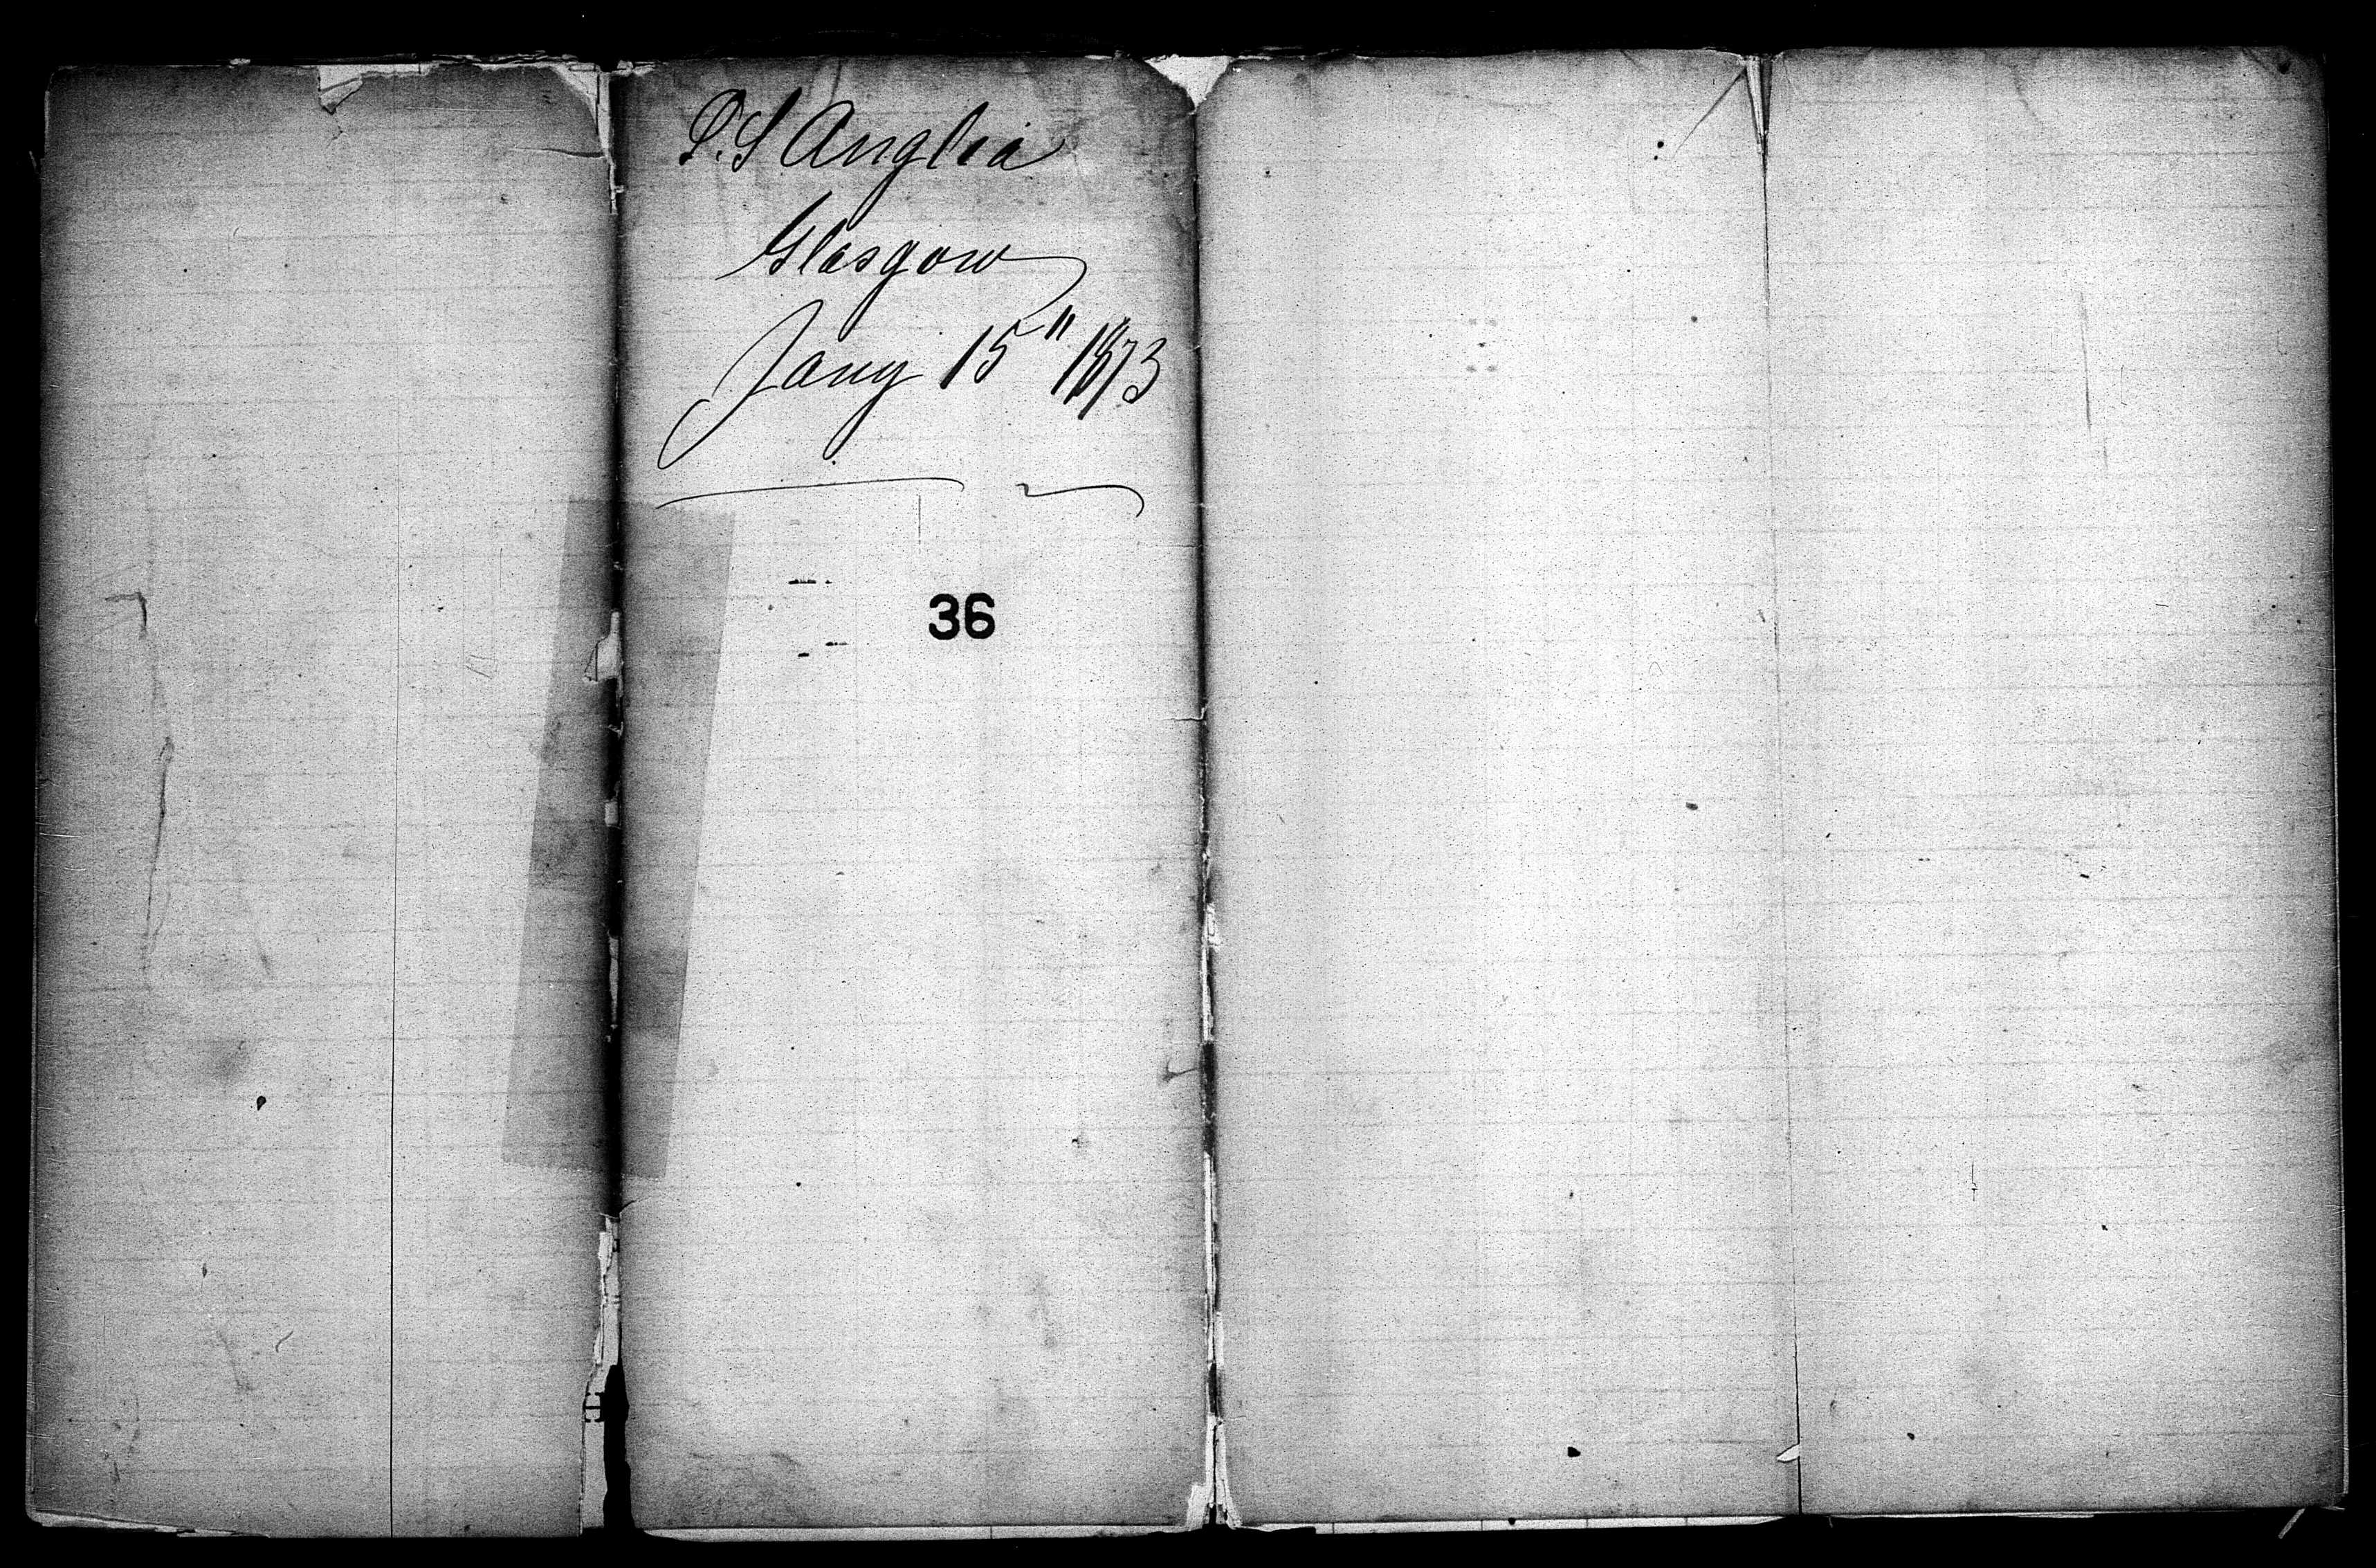 S.S Anglia
Glasgow
Jany 15" 1873
36